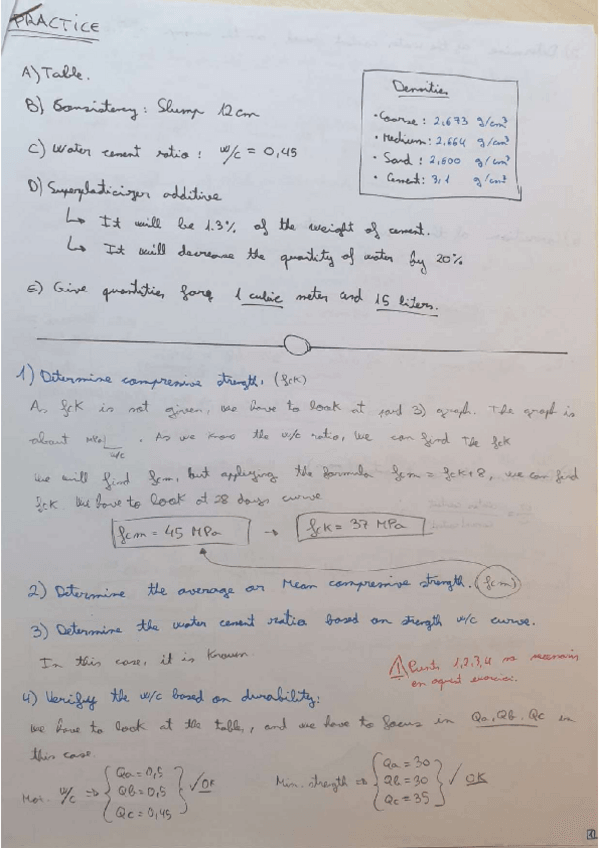 PRACTICE
A) Table.
B) Consistency: Slump 12 cm
C) Water cement ratio: w/c = 0,45
D) Superplasticizer additive
↳ It will be 1.3% of the weight of cement.
↳ It will decrease the quantity of water by 20%
E) Give quantities for 1 cubic meter and 15 liters.
Densities
• Coarse: 2,673 g/cm³
• Medium: 2,664 g/cm³
• Sand: 2,600 g/cm³
• Cement: 3,1 g/cm³
1) Determine compressive strength. (fck)
As fck is not given, we have to look at part 3) graph. The graph is
about MPa w/c. As we know the w/c ratio, we can find the fck
We will find fcm, but applying the formula fcm = fck+8, we can find
fck. We have to look at 28 days curve
fcm = 45 MPa → fck = 37 MPa
2) Determine the average or Mean compressive strength. (fcm)
3) Determine the water cement ratio based on strength w/c curve.
In this case, it is known.
⚠ Punts 1,2,3,4 no necessaris
en aquest exercise.
4) Verify the w/c based on durability:
We have to look at the table, and we have to focus in Qa, Qb, Qc in
this case.
w/c ⇒ { Qa = 0,5 Qb = 0,5 Qc = 0,45 } ✓ OK
Min. strength ⇒ { Qa = 30 Qb = 30 Qc = 35 } ✓ OK